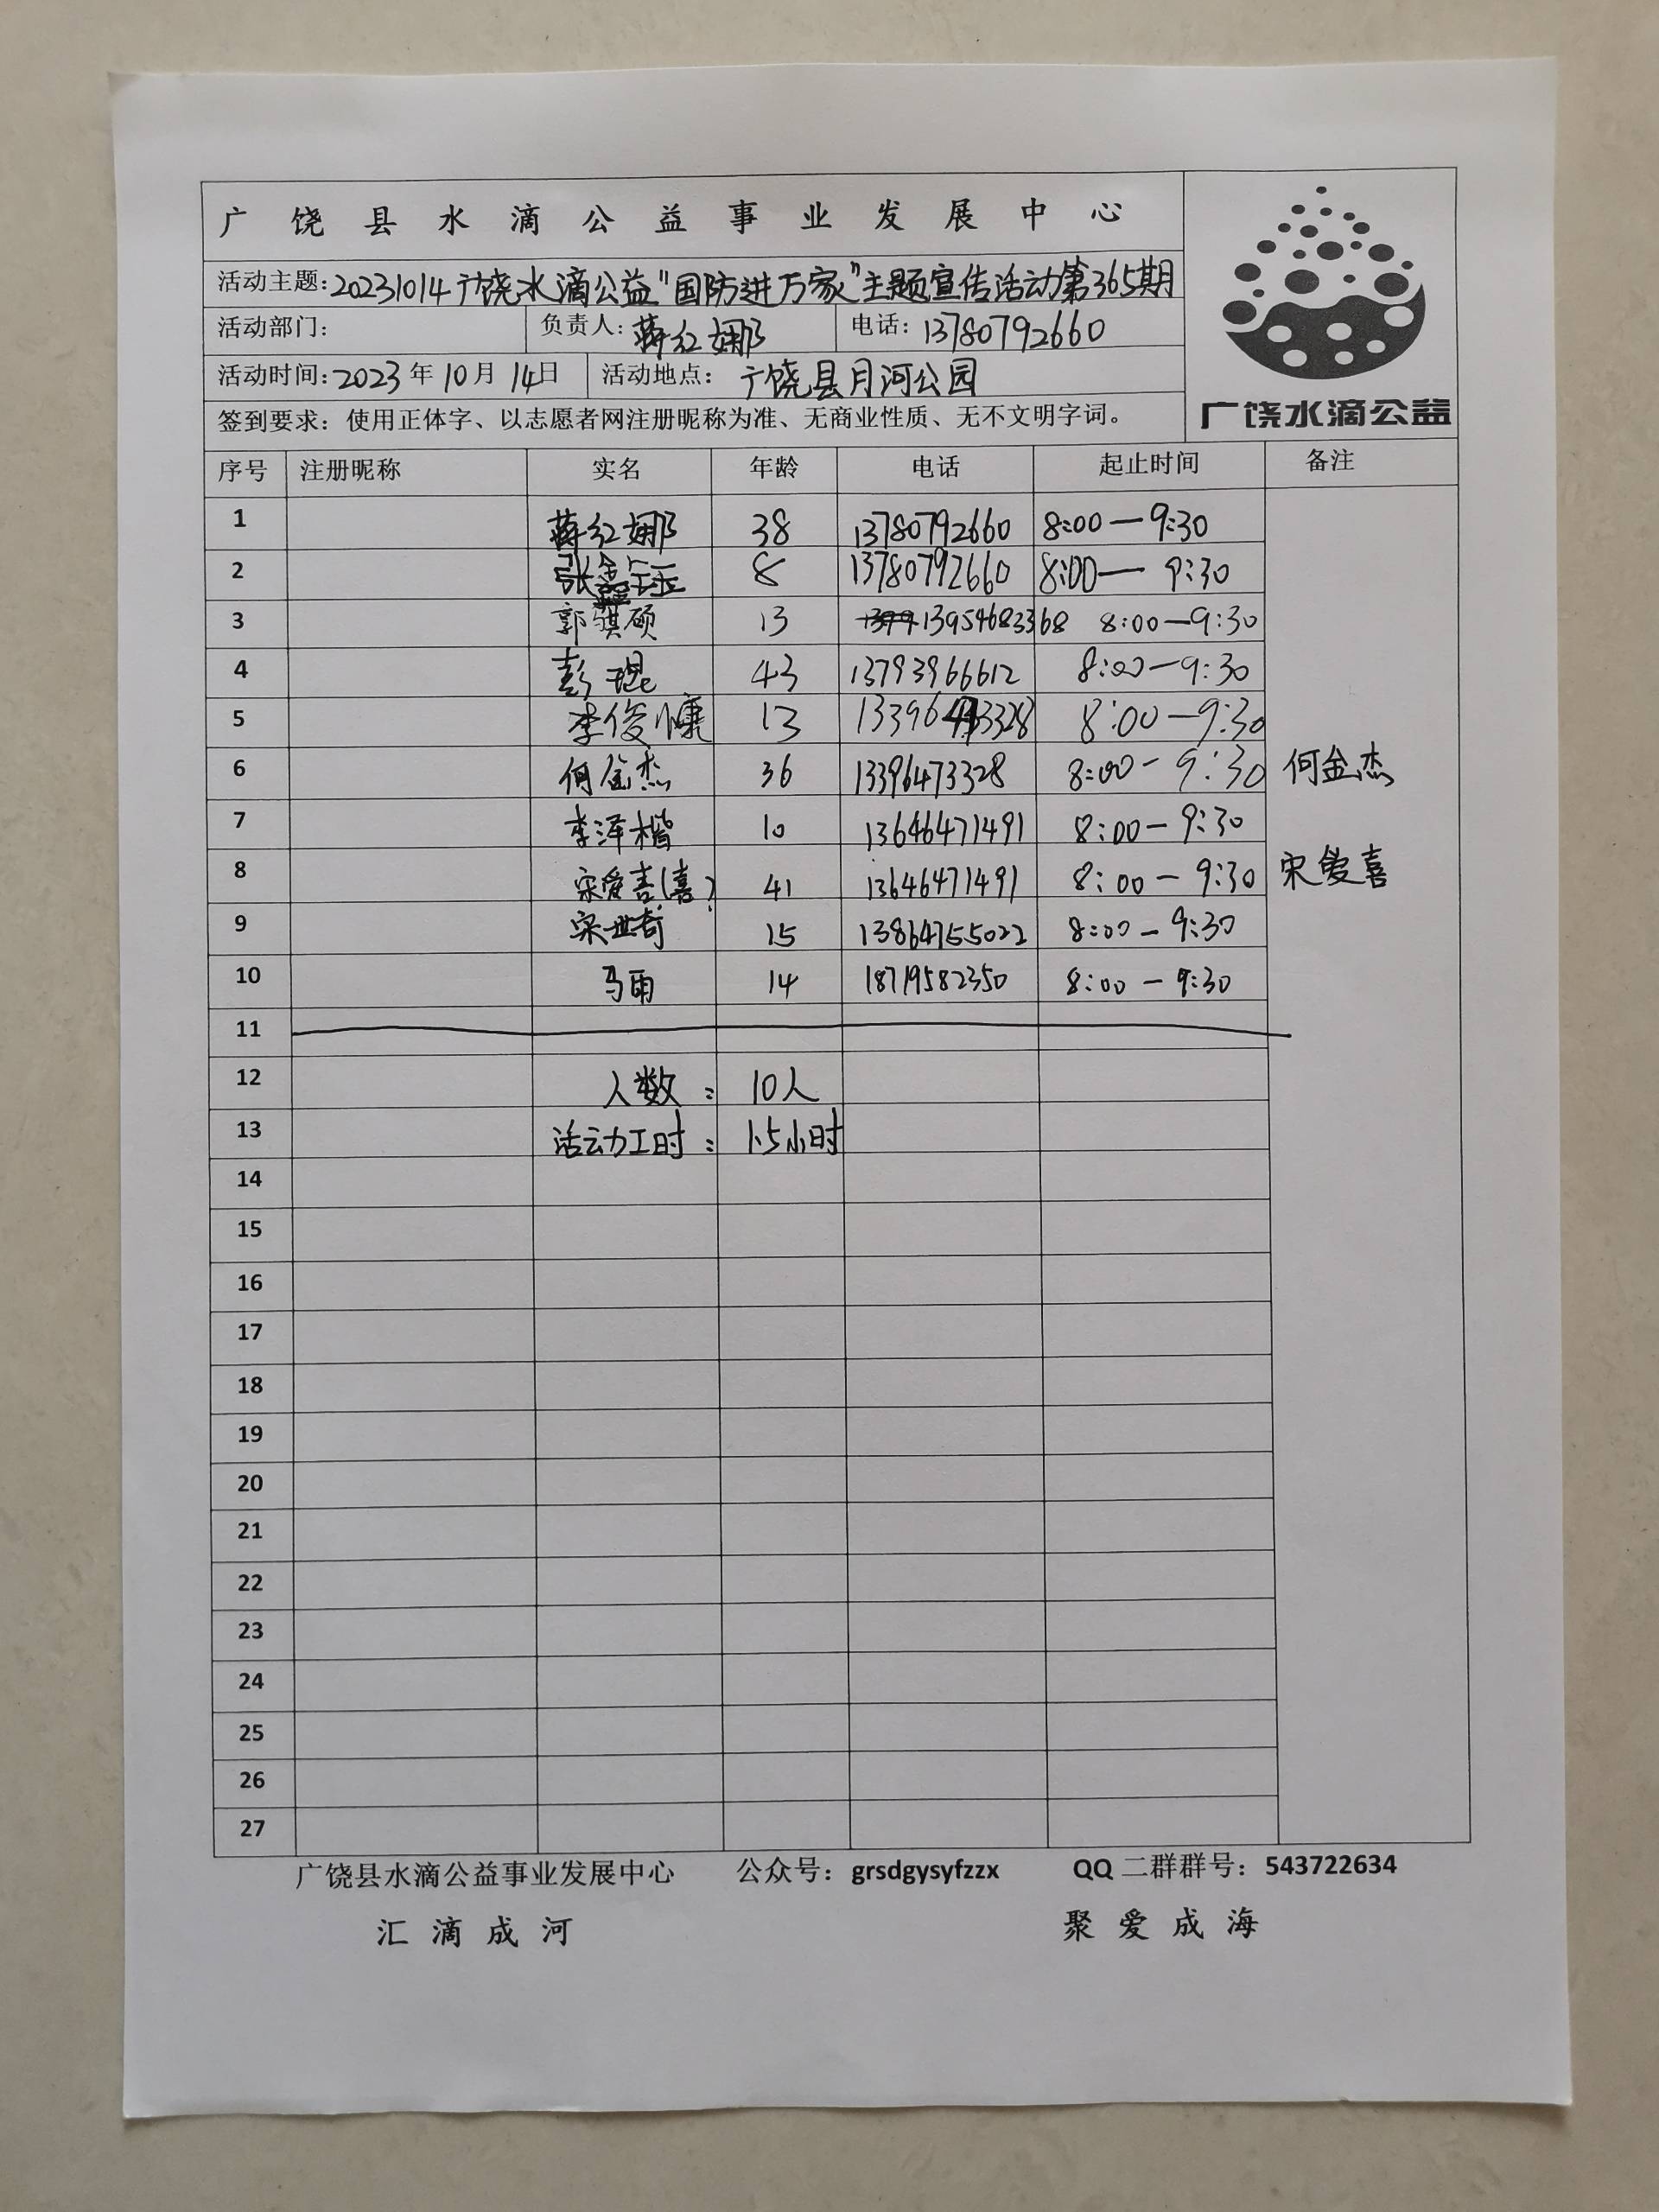 广饶县水滴公益事业发展中心
活动主题:20231014广饶水滴公益"国防进万家"主题宣传活动第365期
活动部门: 负责人:蒋红娜 电话:13780792660
活动时间:2023年10月14日 活动地点:广饶县月河公园
广饶水滴公益
签到要求:使用正体字、以志愿者网注册昵称为准、无商业性质、无不文明字词。
序号 注册昵称 实名 年龄 电话 起止时间 备注
1 蒋红娜 38 13780792660 8:00—9:30
2 张鑫钰 8 13780792660 8:00—9:30
3 郭骐硕 13 13954683368 8:00—9:30
4 彭琨 43 13793966612 8:00—9:30
5 李俊慷 13 8:00—9:30
6 何金杰 36 13396473328 8:00-9:30 何金杰
7 李泽楷 10 13646471491 8:00-9:30
8 宋爱喜(喜) 41 13646471491 8:00-9:30 宋爱喜
9 宋世奇 15 13864755022 8:00-9:30
10 马雨 14 18719582350 8:00-9:30
11
12 人数: 10人
13 活动工时: 1.5小时
14
15
16
17
18
19
20
21
22
23
24
25
26
27
广饶县水滴公益事业发展中心 公众号:grsdgysyfzzx QQ二群群号:543722634
汇滴成河 聚爱成海